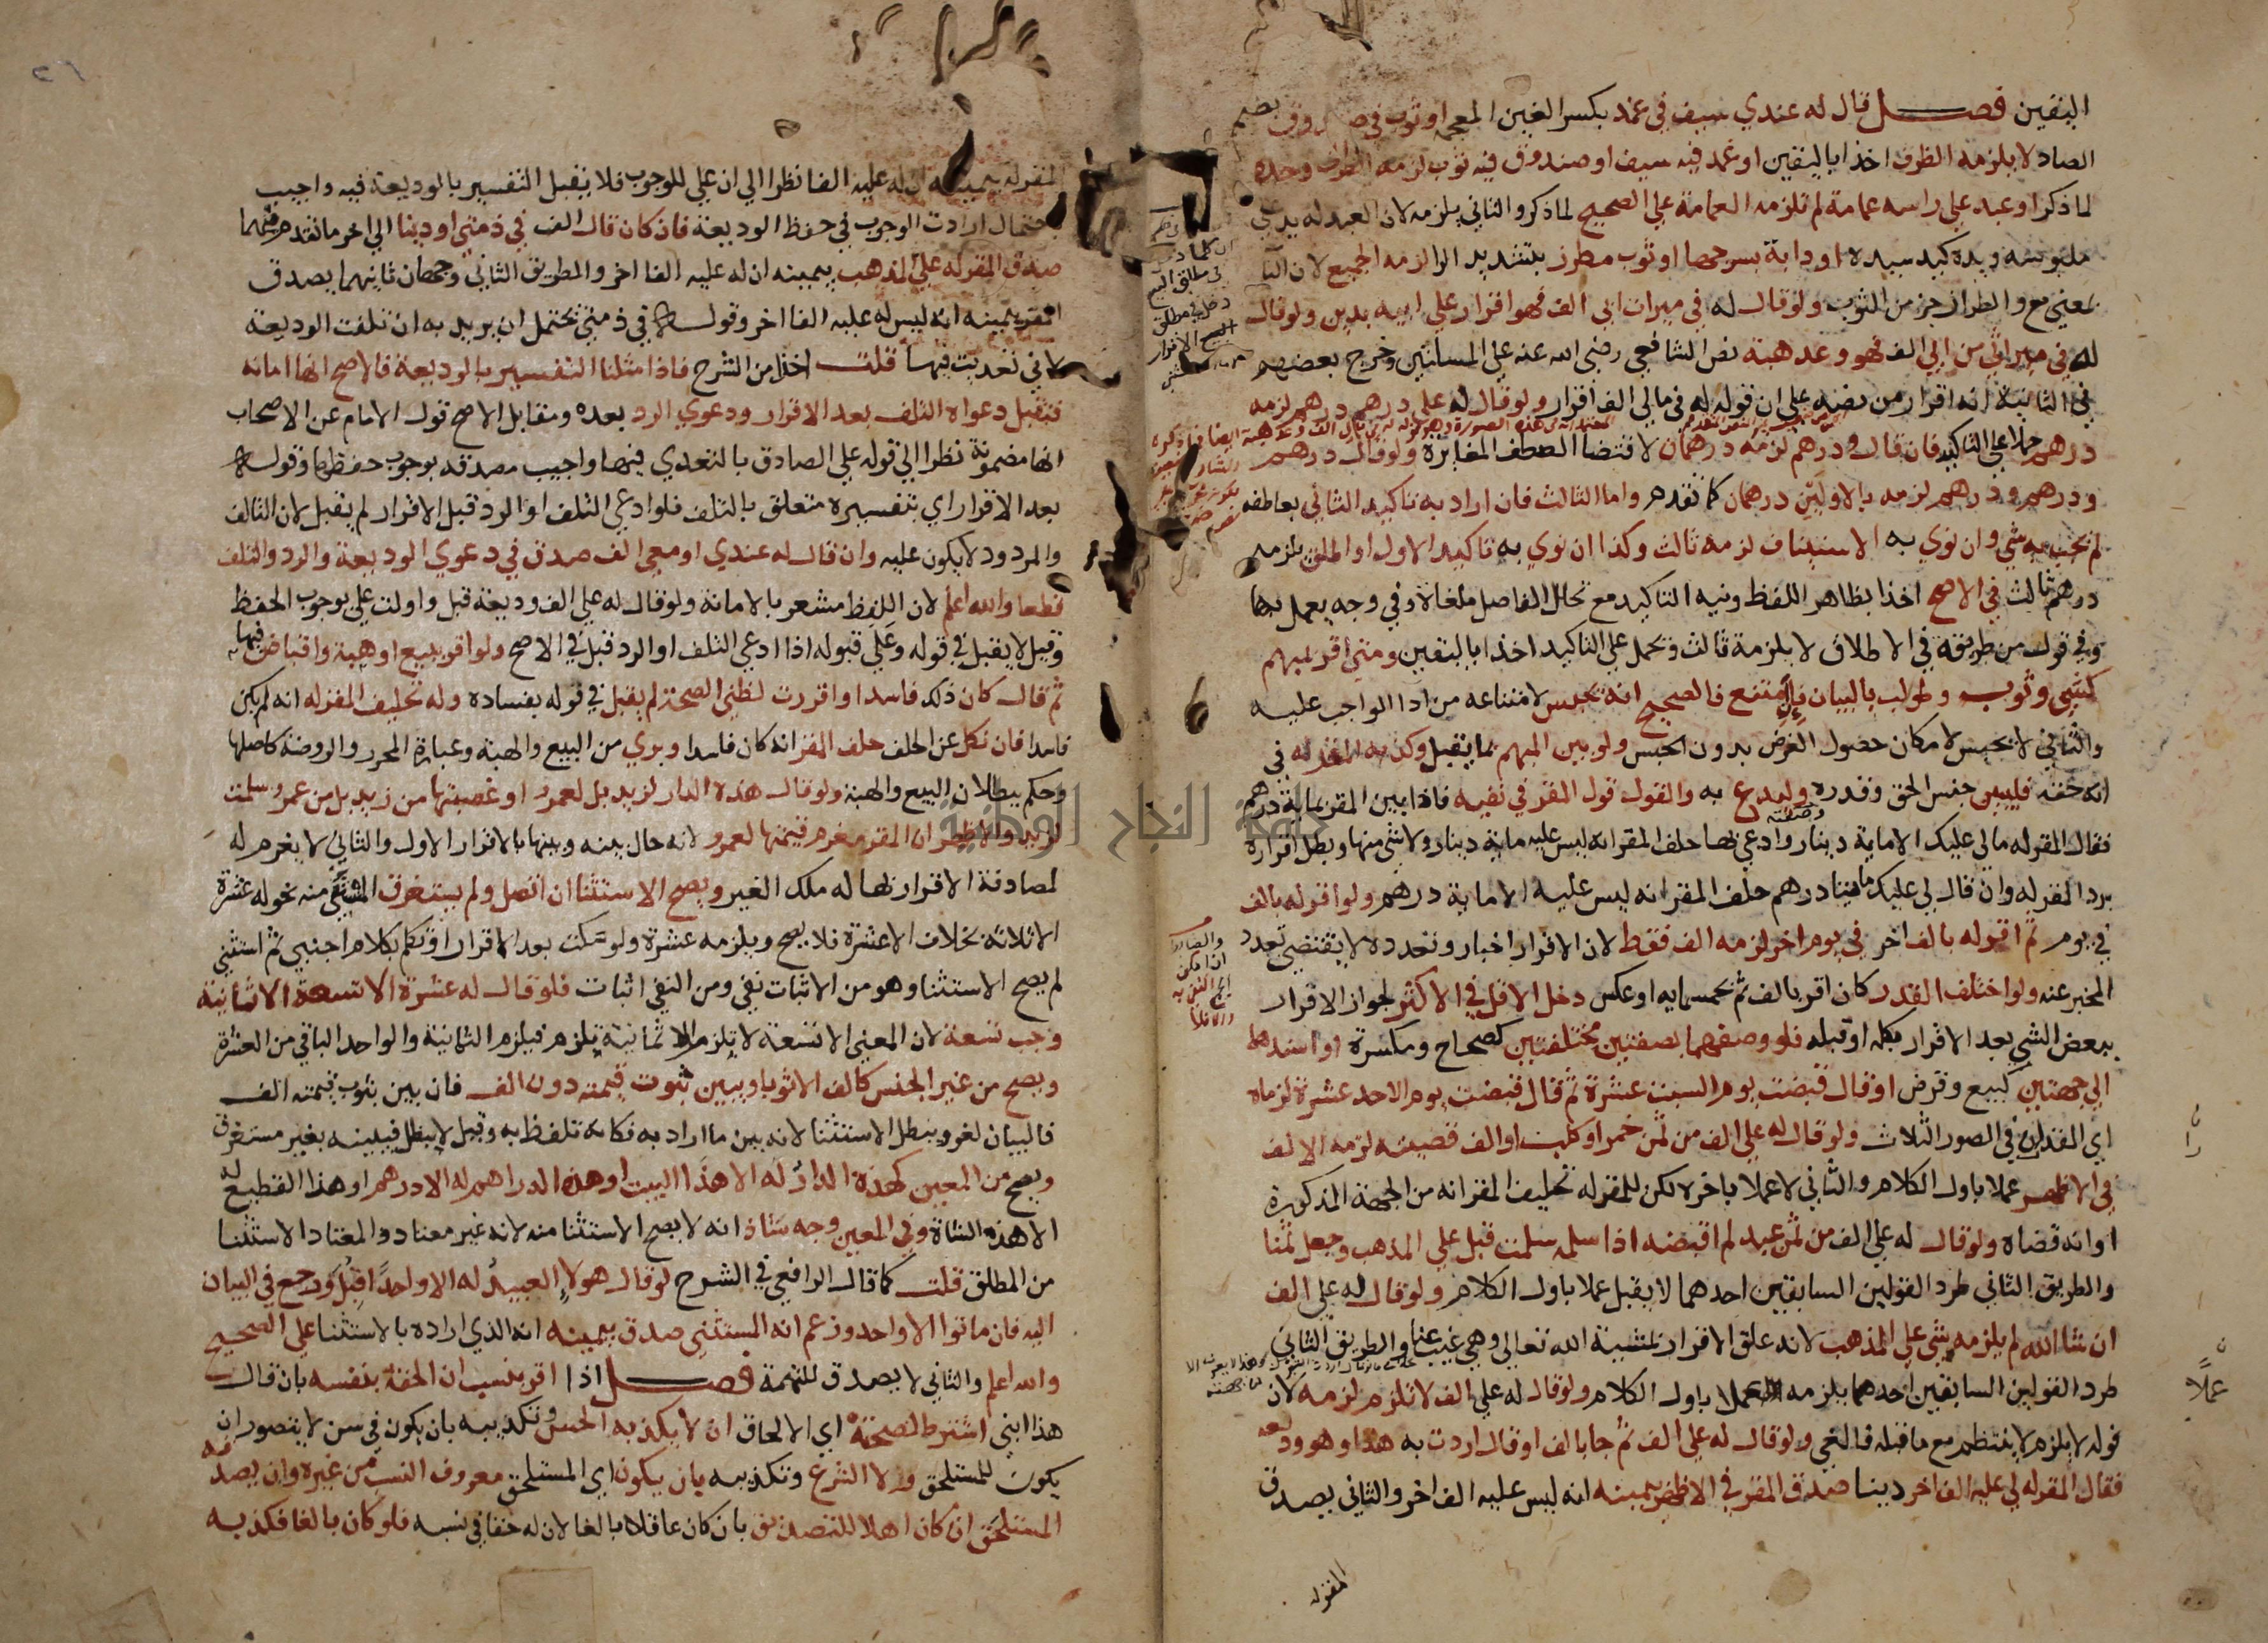 اليقين فصل قال له عندي سيف في غمد بكسر الغين المعجمه او ثوب في صندوق بضم
الصاد لا يلزمه الظرف اخذا باليقين او غمد فيه سيف او صندوق فيه ثوب لزمه الظرف وحده
لما ذكر او عبد علي راسه عمامة لم تلزمه العمامة علي الصحيح لما ذكر والثاني يلزمه لان العبد له يد علي
ملبوسه ويده كيد سيده او دابة بسرجها او ثوب مطرز بتشديد الرا لزمه الجميع لان البا
بمعني مع والطراز جز من الثوب ولو قال له في ميراث ابي الف فهو اقرار علي ابيه بدين ولو قال
له في ميراثي من ابي الف فهو وعد هبة نص الشافعي رضي الله عنه علي المسالتين وخرج بعضهم
في الثانية انه اقرار من نصه علي ان قوله له في مالي الف اقرار ولو قال له علي درهم درهم لزمه
درهم حملا علي التاكيد فان قال ودرهم لزمه درهمان لاقتضا العطف المغايرة ولو قال درهم
ودرهم ودرهم لزمه بالاولين درهمان كما تقدم واما الثالث فان اراد به تاكيد الثاني بعاطفه
لم يجب به شي وان نوي به الاستيناف لزمه ثالث وكذا ان نوي به تاكيد الاول او اطلق يلزمه
درهم ثالث في الاصح اخذا بظاهر اللفظ ونية التاكيد مع تخلل الفاصل ملغاة وفي وجه يعمل بها
وفي قول من طريقة في الاطلاق لا يلزمه ثالث ويحمل علي التاكيد اخذا باليقين ومتي اقر بمبهم
كشي وثوب وطولب بالبيان فامتنع فالصحيح انه يحبس لامتناعه من ادا الواجب عليه
والثاني لا يحبس لامكان حصول الغرض بدون الحبس ولو بين المبهم بما يقبل وكذبه المقر له في
انه حقه فليبين جنس الحق وقدره وصفته وليدع به والقول قول المقر في نفيه فاذا بين المقر بماية درهم
فقال المقر له مالي عليك الا ماية دينار وادعي بها حلف المقر انه ليس عليه ماية دينار ولا شي منها وبطل اقراره
برد المقر له وان قال لي عليك مايتا درهم حلف المقر انه ليس عليه الا ماية درهم ولو اقر له بالف
في يوم ثم اقر له بالف اخر في يوم اخر لزمه الف فقط لان الاقرار اخبار وتعدده لا يقتضي تعدد
المخبر عنه ولو اختلف القدر كان اقر بالف ثم بخمسمايه او عكس دخل الاقل في الاكثر لجواز الاقرار
ببعض الشي بعد الاقرار بكله او قبله فلو وصفهما بصفتين مختلفتين كصحاح ومكسرة او اسندهما
الي جهتين كبيع وقرض او قال قبضت يوم السبت عشرة ثم قال قبضت يوم الاحد عشرة لزماه
اي القدران في الصور الثلاث ولو قال له علي الف من ثمن خمر او كلب او الف قضيته لزمه الالف
في الاظهر عملا باول الكلام والثاني لا عملا باخره لكن للمقر له تحليف المقر انه من الجهة المذكورة
او انه قضاه ولو قال له علي الف من ثمن عبد لم اقبضه اذا سلمه سلمت قبل علي المذهب وجعل ثمنا
والطريق الثاني طرد القولين السابقين احدهما لا يقبل عملا باول الكلام ولو قال له علي الف
ان شا الله لم يلزمه شي علي المذهب لانه علق الاقرار بمشيئة الله تعالي وهي غيب عنا والطريق الثاني
طرد القولين السابقين احدهما يلزمه عملا باول الكلام ولو قال له علي الف لا تلزم لزمه لان
قوله لا يلزم لا ينتظم مع ما قبله فالغي ولو قال له علي الف ثم جا بالف او قال اردت به هذا وهو وديعه
فقال المقر له لي عليه الف اخر دينا صدق المقر في الاظهر بيمينه انه ليس عليه الف اخر والثاني يصدق
المقر له
عملا
المقر له بيمينه ان له عليه الفا نظرا الي ان علي للوجوب فلا يقبل التفسير بالوديعة فيه واجيب
باحتمال ارادت الوجوب في حفظ الوديعة فان كان قال الف في ذمتي او دينا الي اخر ما تقدم فيهما
صدق المقر له علي المذهب بيمينه ان له عليه الفا اخر والطريق الثاني وجهان ثانيهما يصدق
المقر بيمينه انه ليس له عليه الفا اخر وقوله في ذمتي يحتمل ان يريد به ان تلفت الوديعة
لاني تعديت فيها قلت اخلل من الشرح فاذا مثلنا التفسير بالوديعة فالاصح انها امانه
فتقبل دعواه التلف بعد الاقرار ودعوي الرد بعده ومقابل الاصح قول الامام عن الاصحاب
انها مضمونة نظرا الي قوله علي الصادق بالتعدي فيها واجيب بصدقه بوجوب حفظها وقوله
بعد الاقرار اي بتفسيره متعلق بالتلف فلو ادعي التلف او الرد قبل الاقرار لم يقبل لان التالف
والمردود لا يكون عليه وان قال له عندي او معي الف صدق في دعوي الوديعة والرد والتلف
قطعا والله اعلم لان اللفظ مشعر بالامانة ولو قال له علي الف وديعة قبل واولت علي بوجوب الحفظ
وقيل لا يقبل في قوله وعلي قبوله اذا ادعي التلف او الرد قبل في الاصح ولو اقر ببيع او هبة واقباض فيها
ثم قال كان ذلك فاسدا واقررت لظني الصحة لم يقبل في قوله بفساده وله تحليف المقر له انه لم يكن
فاسدا فان نكل عن الحلف حلف المقر انه كان فاسدا وبري من البيع والهبة وعبارة المحرر والروضة كاصلها
وحكم ببطلان البيع والهبة ولو قال هذه الدار لزيد بل لعمرو او غصبتها من زيد بل من عمرو سلمت
لزيد والاظهر ان المقر يغرم قيمتها لعمرو لانه حال بينه وبينها بالاقرار الاول والثاني لا يغرم له
لمصادفة الاقرار بها له ملك الغير ويصح الاستثنا ان اتصل ولم يستغرق المستثني منه نحو له عشرة
الا ثلاثة بخلاف الا عشرة فلا يصح ويلزمه عشرة ولو سكت بعد الاقرار او تكلم بكلام اجنبي ثم استثني
لم يصح الاستثنا وهو من الاثبات نفي ومن النفي اثبات فلو قال له عشرة الا تسعة الا ثمانية
وجب تسعة لان المعني الا تسعة لا تلزم الا ثمانية تلزم فيلزم الثمانية والواحد الباقي من العشرة
ويصح من غير الجنس كالف الا ثوبا ويبين بثوب قيمته دون الف فان بين بثوب قيمته الف
فالبيان لغو ويبطل الاستثنا لانه بين ما اراد به فكانه تلفظ به وقيل لا يبطل فيبينه بغير مستغرق
ويصح من المعين كهذه الدار له الا هذا البيت او هذه الدراهم له الا درهم او هذا القطيع له
الا هذه الشاة وفي المعين وجه شاذ انه لا يصح الاستثنا منه لانه غير معتاد والمعتاد الاستثنا
من المطلق قلت كما قال الرافعي في الشرح لو قال هولا العبيد له الا واحدا قبل ورجع في البيان
اليه فان ماتوا الا واحد وزعم انه المستثني صدق بيمينه انه الذي اراده بالاستثنا علي الصحيح
والله اعلم والثاني لا يصدق للتهمة فصل اذا اقر بنسب ان الحقه بنفسه بان قال
هذا ابني اشترط لصحته اي الالحاق ان لا يكذبه الحس وتكذيبه بان يكون في سن لا يتصور ان
يكون للمستلحق ولا الشرع وتكذيبه بان يكون اي المستلحق معروف النسب من غيره وان يصدقه
المستلحق ان كان اهلا للتصديق بان كان عاقلا بالغا لان له حقا في نسبه فلو كان بالغا فكذبه
جامعة النجاح الوطنية